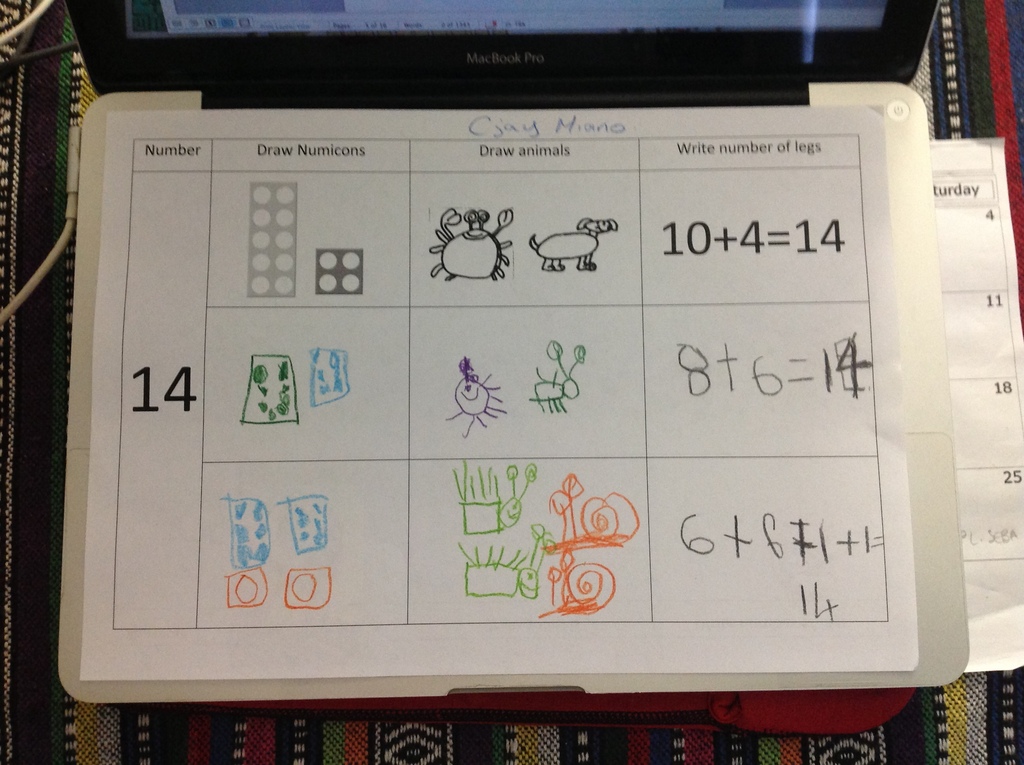 MacBook Pro
Cjay Miano
Number
Draw Numicons
Draw animals
Write number of legs
14
10+4=14
8+6=14
6+6+1+1=
14
turday
4
11
18
25
PL. SEBA